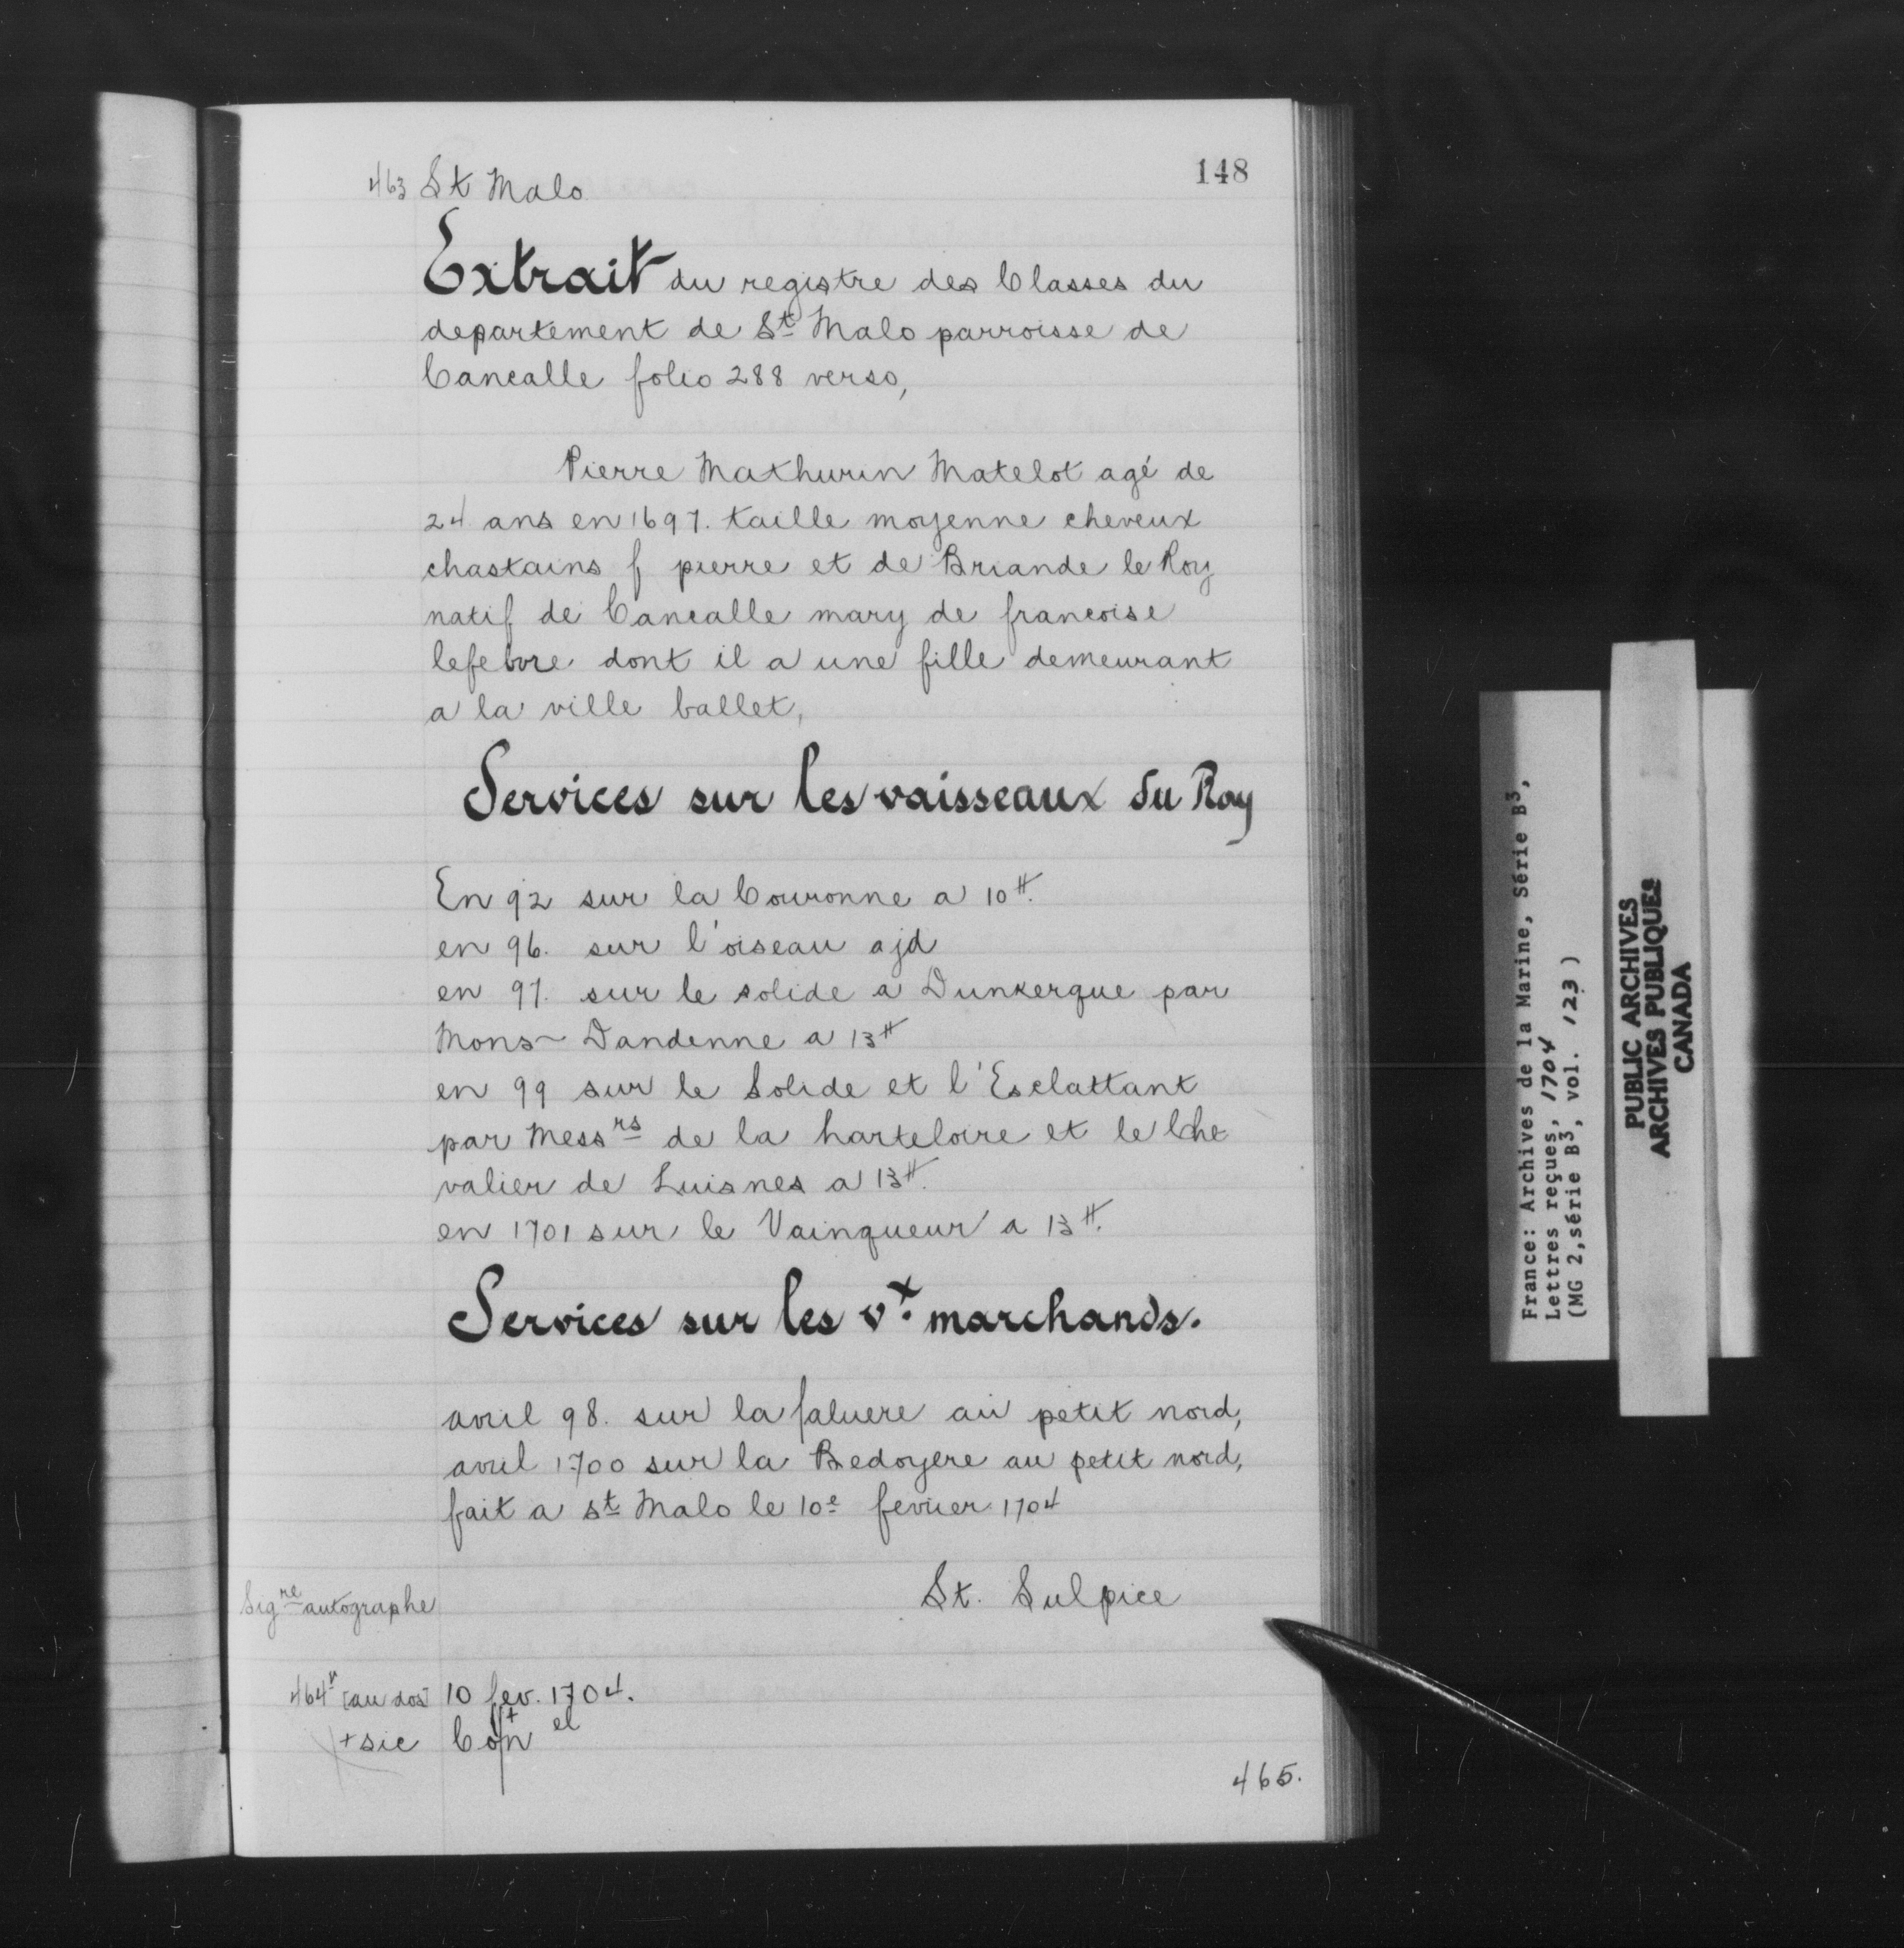 148
463 St Malo
Extrait du registre des Classes du
departement de St Malo parroisse de
Cancalle folio 288 verso,
Pierre Mathurin Matelot agé de
24 ans en 1697. taille moyenne cheveux
chastains f pierre et de Briande le Roy
natif de Cancalle mary de francoise
lefebvre dont il a une fille demeurant
a la ville ballet,
Services sur les vaisseaux du Roy
En 92 sur la Couronne a 10⁠tt.
en 96. sur l'oiseau ajd
en 97. sur le solide a Dunkerque par
Mons~ Dandenne a 13tt
en 99 sur le Solide et l'Esclattant
par Messrs de la harteloire et le Che
valier de Luisnes a 13tt.
en 1701 sur le Vainqueur a 13tt.
Services sur les vx marchands.
avril 98. sur la faluere au petit nord,
avril 1700 sur la Bedoyere au petit nord,
fait a st Malo le 10e fevrier 1704
Sigre autographe
St. Sulpice
464v [au dos] 10 fev. 1704.
+sic
465.
France: Archives de la Marine, Série B3,
Lettres reçues, 1704
(MG 2,série B3, vol. 123)
PUBLIC ARCHIVES
ARCHIVES PUBLIQUES
CANADA